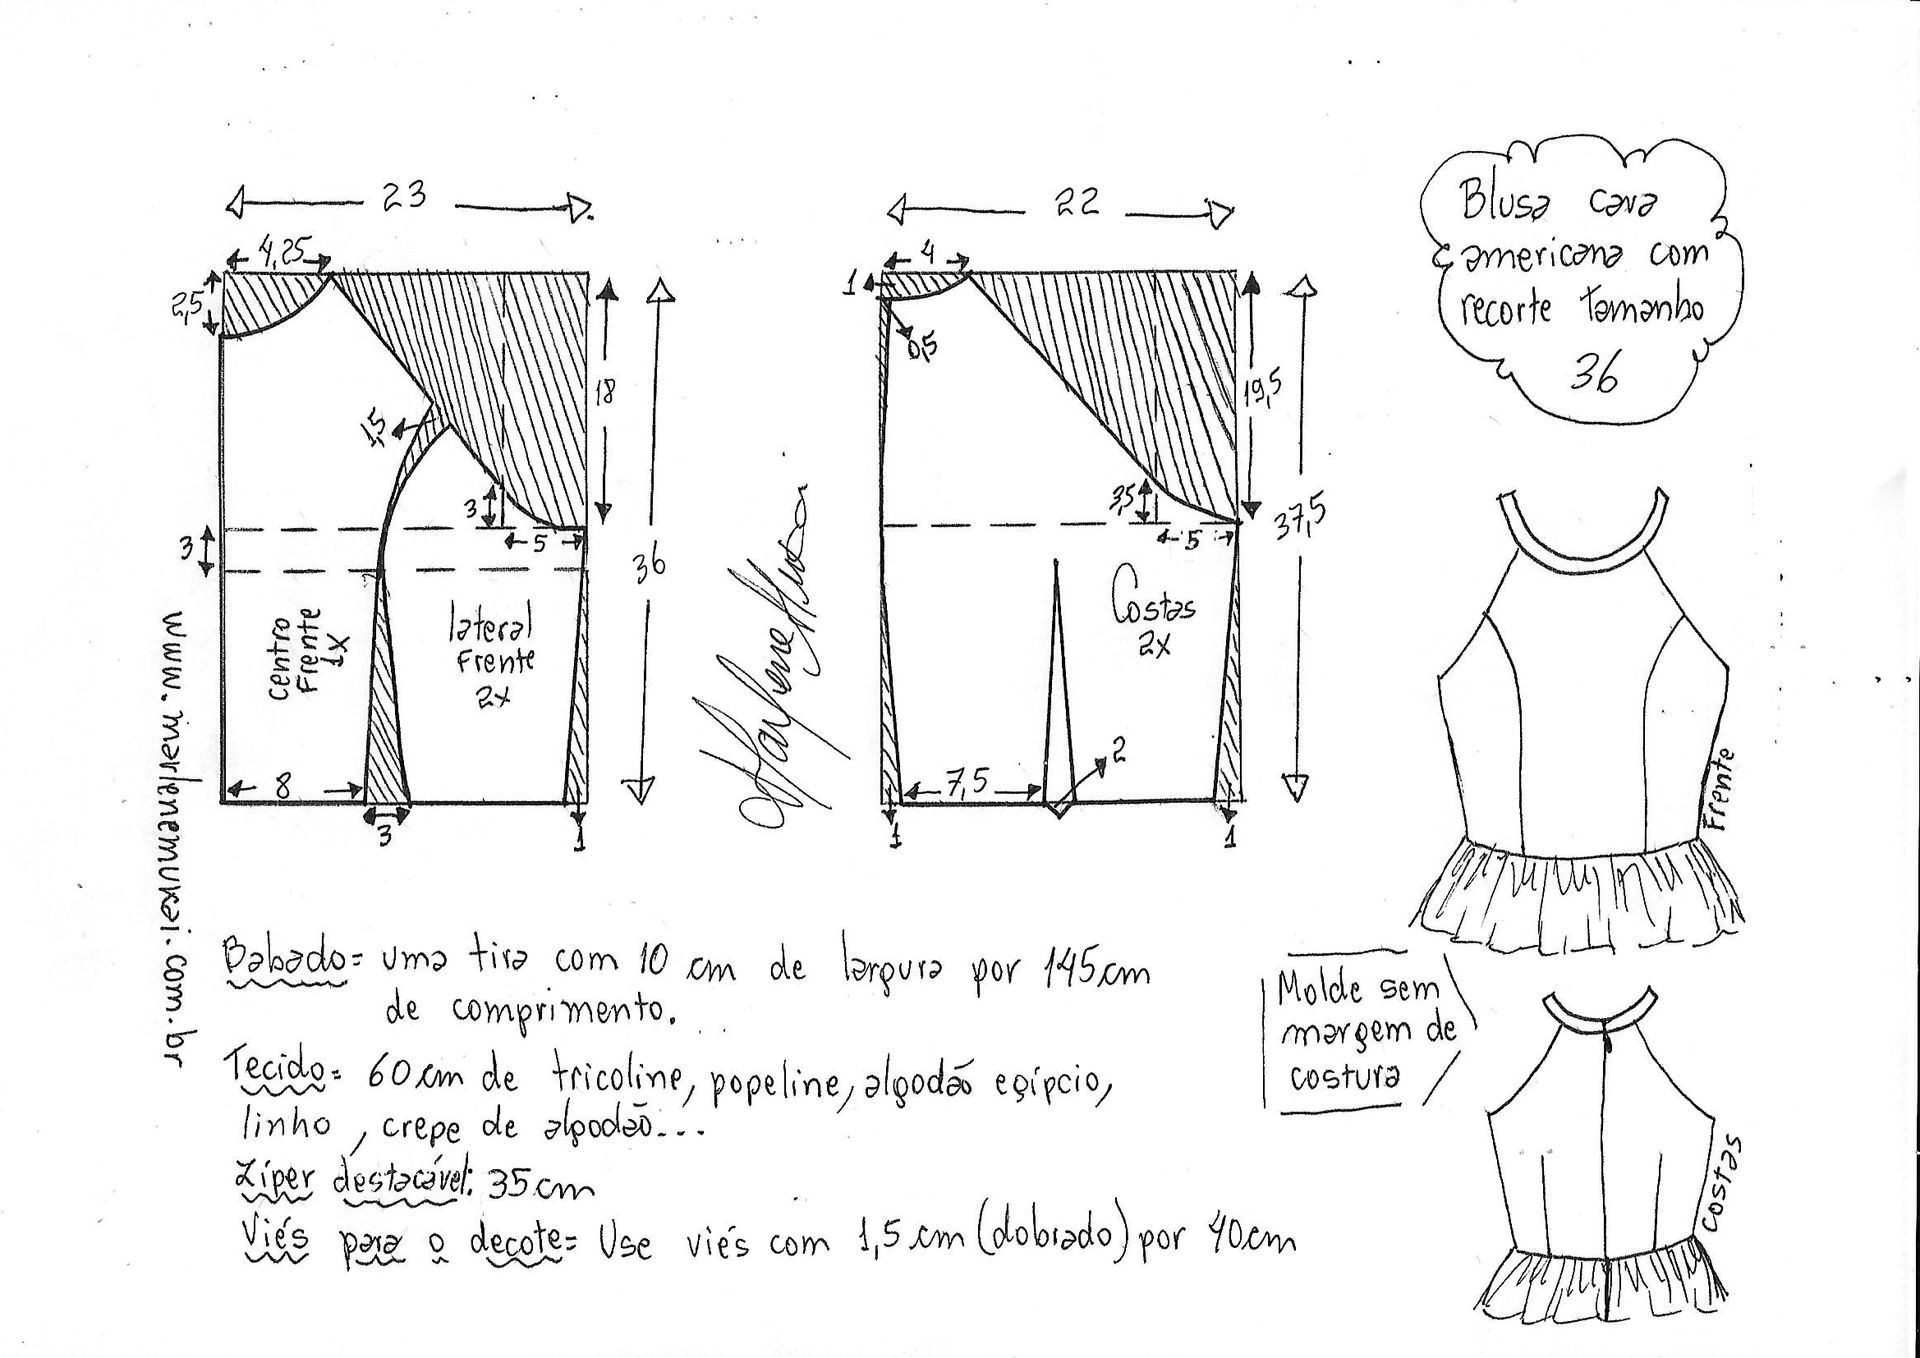 23
4,25
2,5
18
36
1,5
3
5
3
centro
Frente
1X
lateral
Frente
2X
8
3
1
www.marlenemukai.com.br
22
4
1
0,5
19,5
37,5
3,5
5
Costas
2X
7,5
2
1
1
Blusa cava
americana com
recorte tamanho
36
Frente
Babado= uma tira com 10 cm de largura por 145cm
de comprimento.
Tecido= 60cm de tricoline, popeline, algodão egípcio,
linho, crepe de algodão...
Zíper destacável: 35cm
Viés para o decote= Use viés com 1,5 cm (dobrado) por 40cm
Molde sem
margem de
costura
Costas